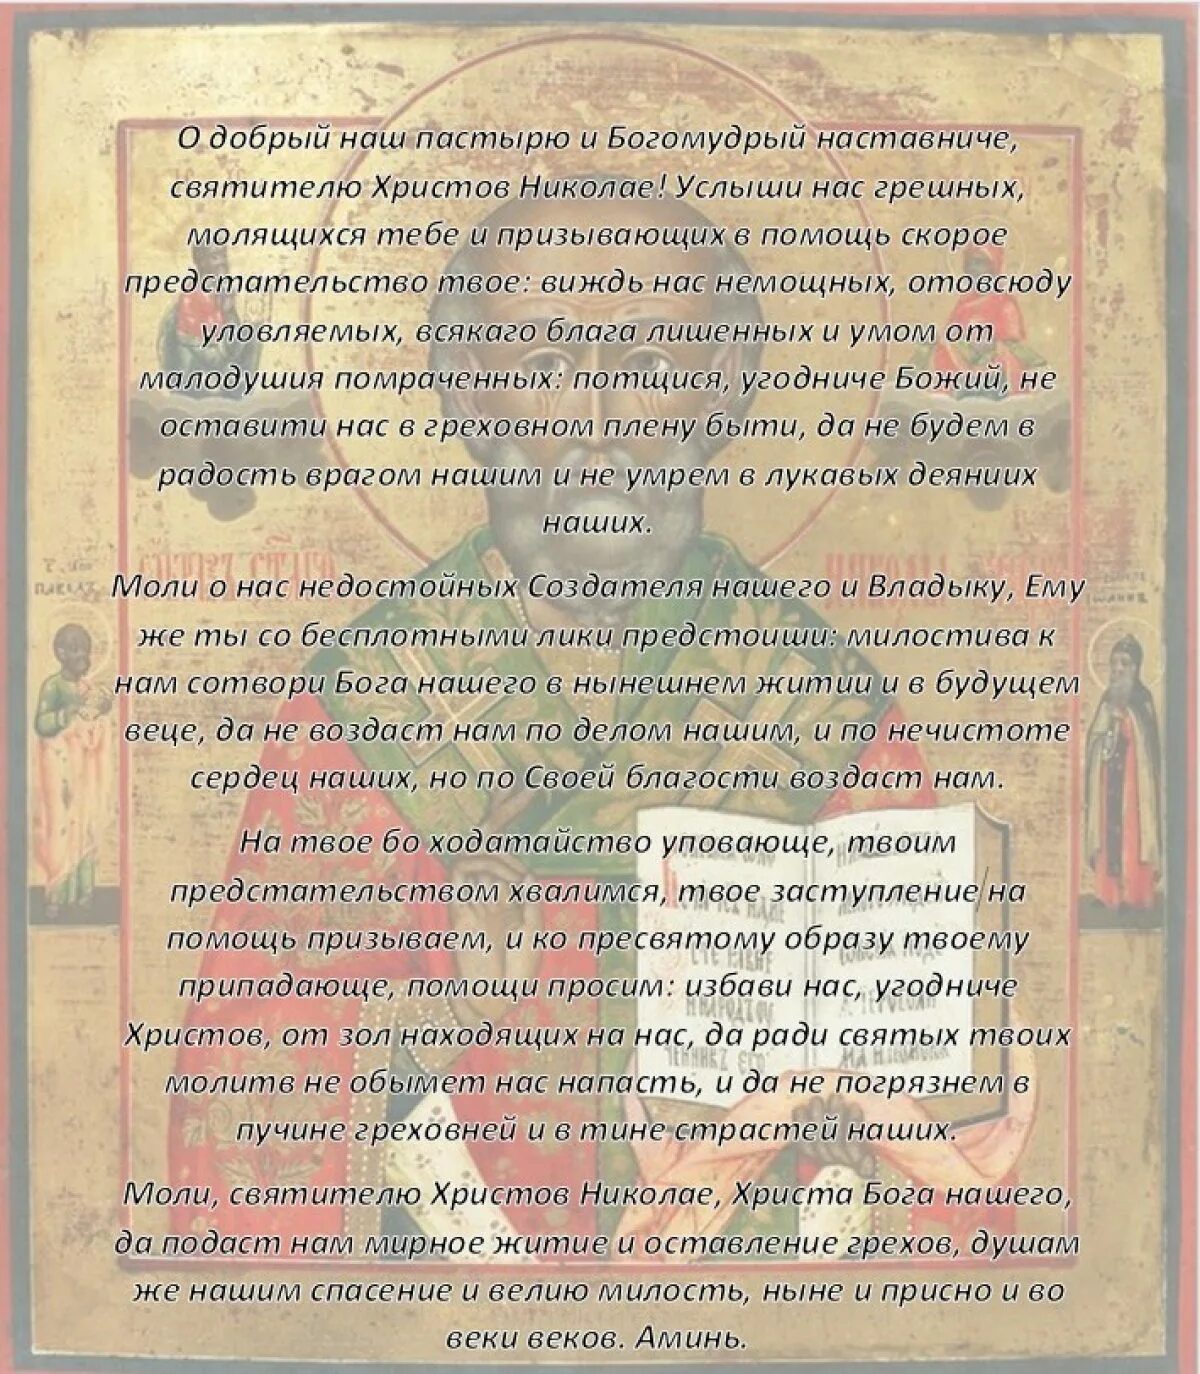 О добрый наш пастырю и Богомудрый наставниче,
святителю Христов Николае! Услыши нас грешных,
молящихся тебе и призывающих в помощь скорое
предстательство твое: виждь нас немощных, отовсюду
уловляемых, всякаго блага лишенных и умом от
малодушия помраченных: потщися, угодниче Божий, не
оставити нас в греховном плену быти, да не будем в
радость врагом нашим и не умрем в лукавых деяниих
наших.
Моли о нас недостойных Создателя нашего и Владыку, Ему
же ты со бесплотными лики предстоиши: милостива к
нам сотвори Бога нашего в нынешнем житии и в будущем
веце, да не воздаст нам по делом нашим, и по нечистоте
сердец наших, но по Своей благости воздаст нам.
На твое бо ходатайство уповающе, твоим
предстательством хвалимся, твое заступление на
помощь призываем, и ко пресвятому образу твоему
припадающе, помощи просим: избави нас, угодниче
Христов, от зол находящих на нас, да ради святых твоих
молитв не обымет нас напасть, и да не погрязнем в
пучине греховней и в тине страстей наших.
Моли, святителю Христов Николае, Христа Бога нашего,
да подаст нам мирное житие и оставление грехов, душам
же нашим спасение и велию милость, ныне и присно и во
веки веков. Аминь.